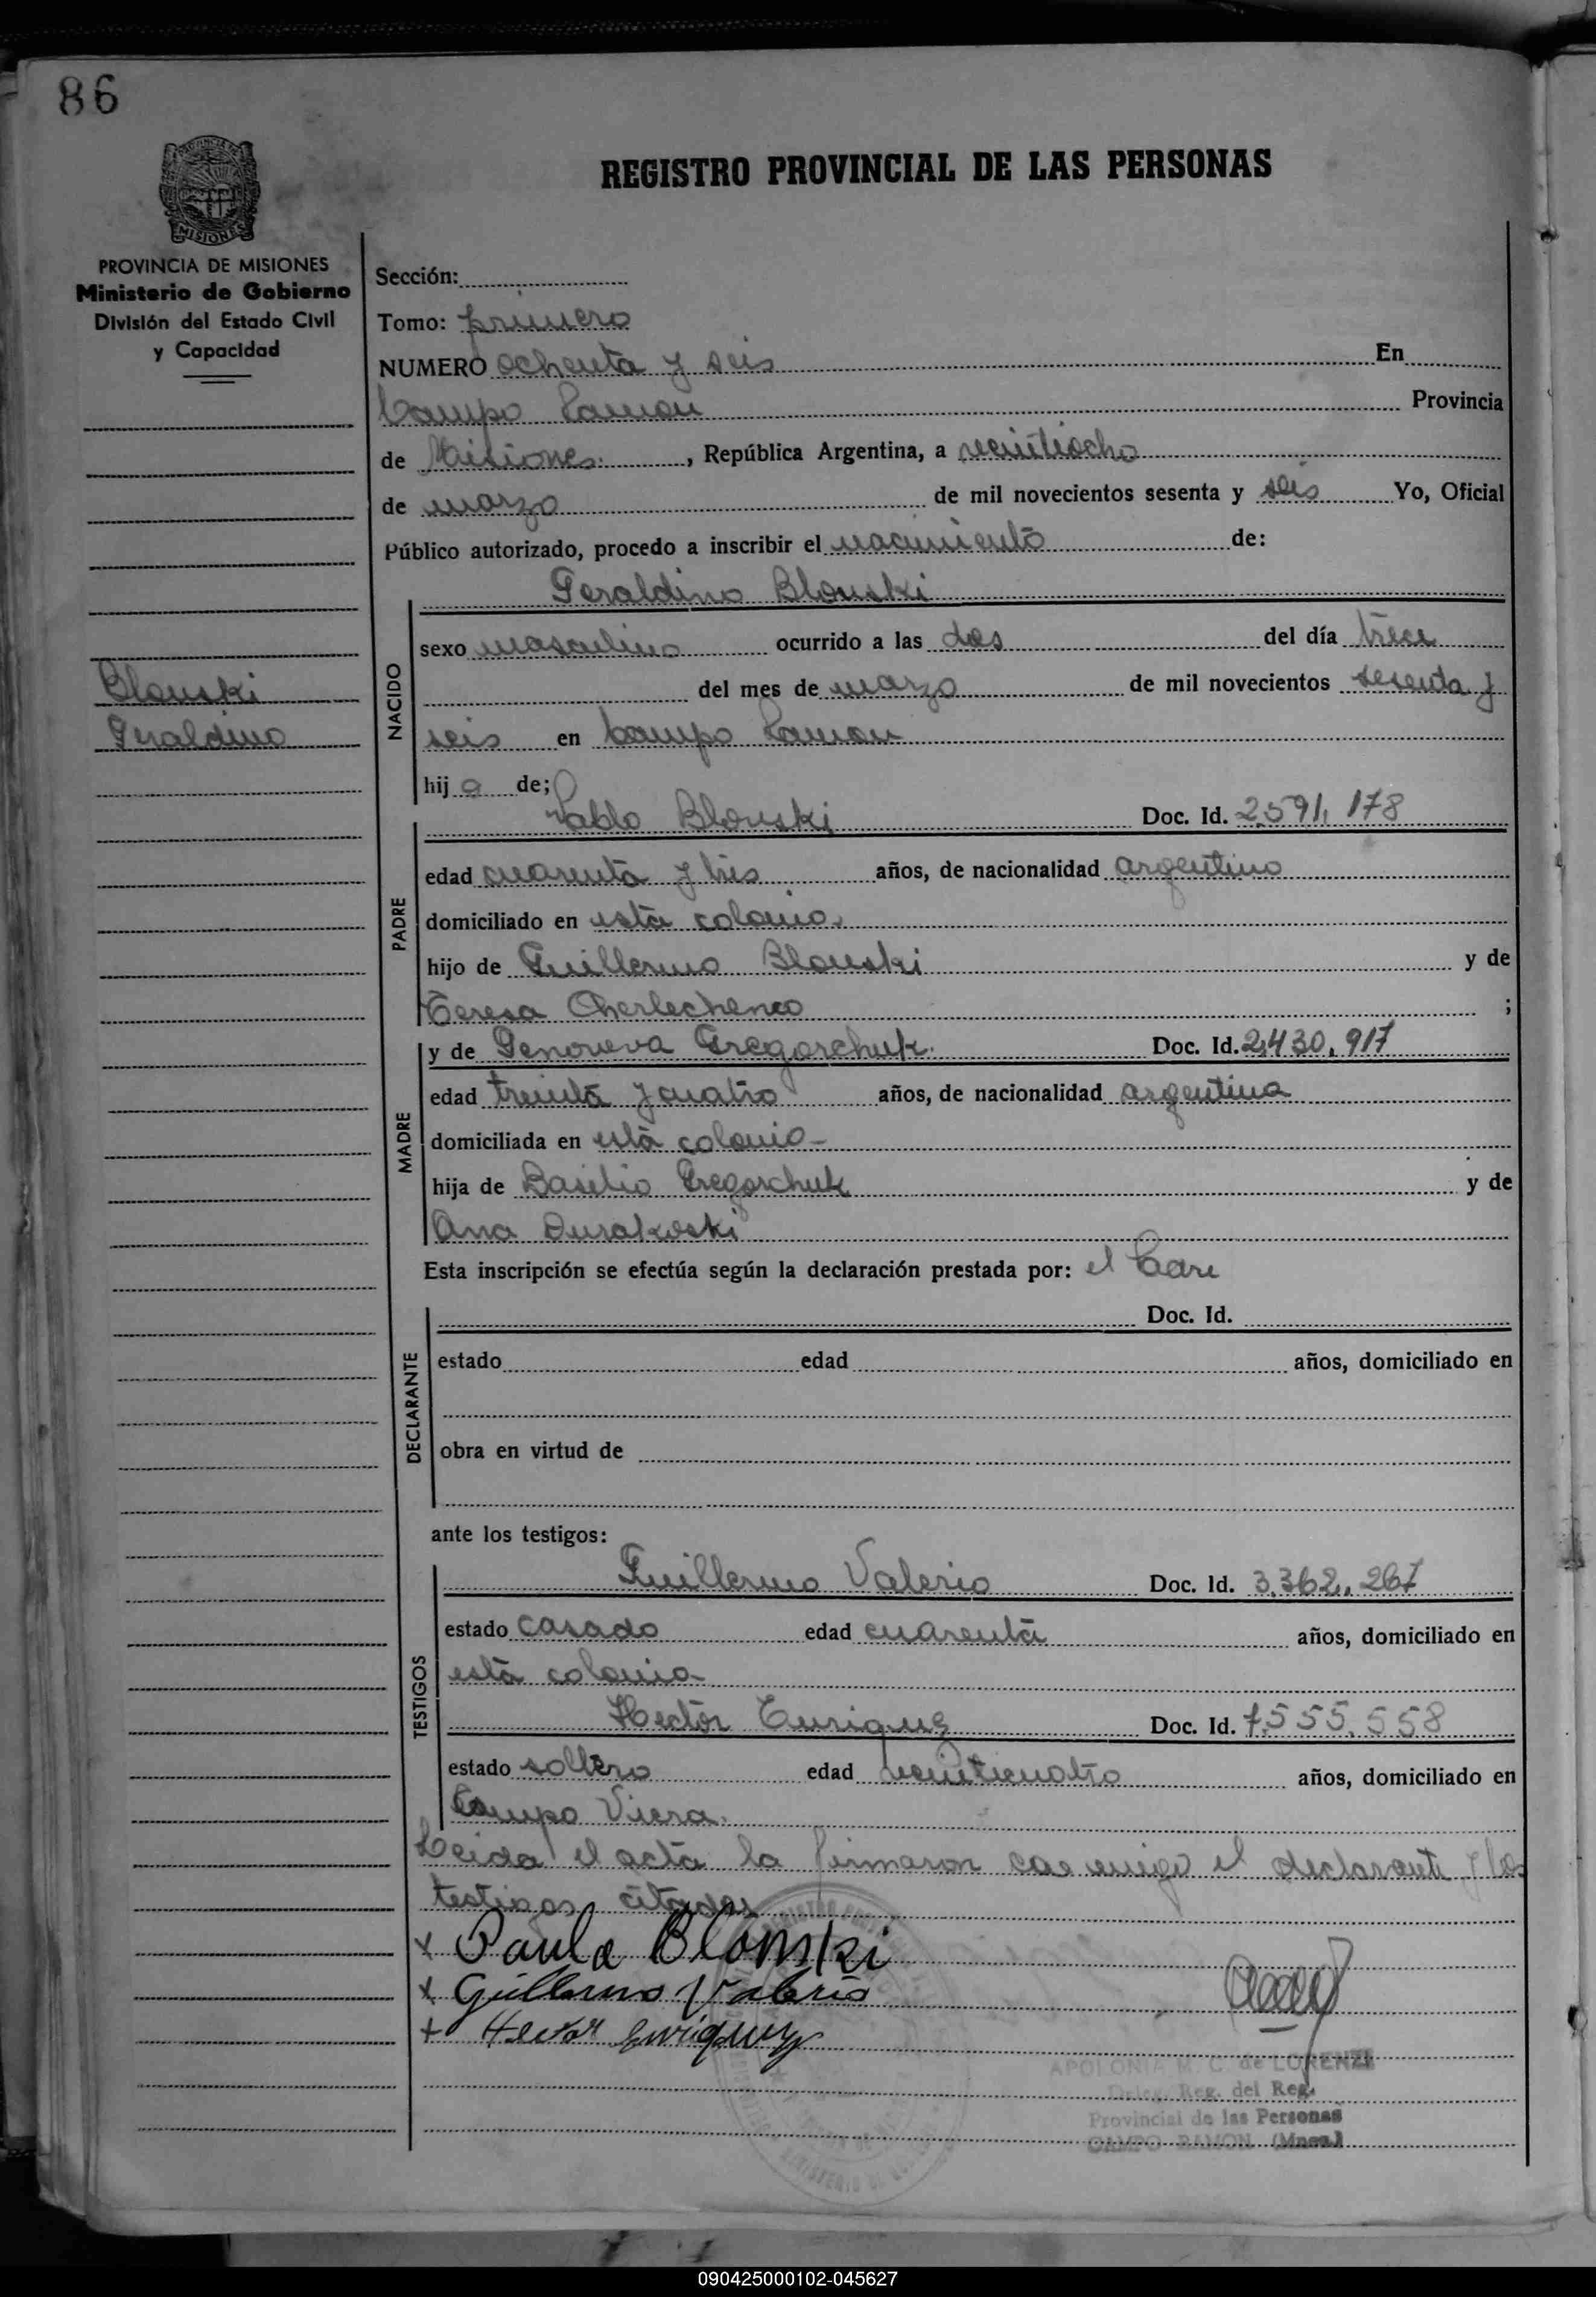 86
REGISTRO PROVINCIAL DE LAS PERSONAS
MISIONES
PROVINCIA DE MISIONES
Ministerio de Gobierno
División del Estado Civil
y Capacidad
Blonski
Geraldino
Sección:
Tomo: primero
NUMERO ochenta y seis En
Campo Ramon Provincia
de Misiones. , República Argentina, a veintiocho
de marzo de mil novecientos sesenta y seis Yo, Oficial
Público autorizado, procedo a inscribir el nacimiento de:
Geraldino Blonski
NACIDO
sexo masculino ocurrido a las dos del día trece
del mes de marzo de mil novecientos sesenta y
seis en Campo Ramon
hij o de;
Pablo Blonski Doc. Id. 2.591.178
PADRE
edad cuarenta y tres años, de nacionalidad argentino
domiciliado en esta colonia.
hijo de Guillermo Blonski y de
Teresa Cherlechenco ;
y de Genoveva Gregorchuk. Doc. Id. 2.430.917
MADRE
edad treinta y cuatro años, de nacionalidad argentina
domiciliada en esta colonia-
hija de Basilio Gregorchuk y de
Ana Durakoski
Esta inscripción se efectúa según la declaración prestada por: el
Doc. Id.
DECLARANTE
estado edad años, domiciliado en
obra en virtud de
ante los testigos:
Guillermo Valerio Doc. Id. 3.362.267
TESTIGOS
estado casado edad cuarenta años, domiciliado en
esta colonia-
Hector Enriquez Doc. Id. 7.555.558
estado soltero edad veinticuatro años, domiciliado en
Campo Viera.
Leida el acta la firmaron conmigo el declarante y los
testigos citados
x Paulo Blonski
x Guillermo Valerio
+ Hector Enriquez
APOLONIA M. C. de LORENZI
Deleg. Reg. del Reg.
Provincial de las Personas
CAMPO RAMON (Mnes.)
090425000102-045627